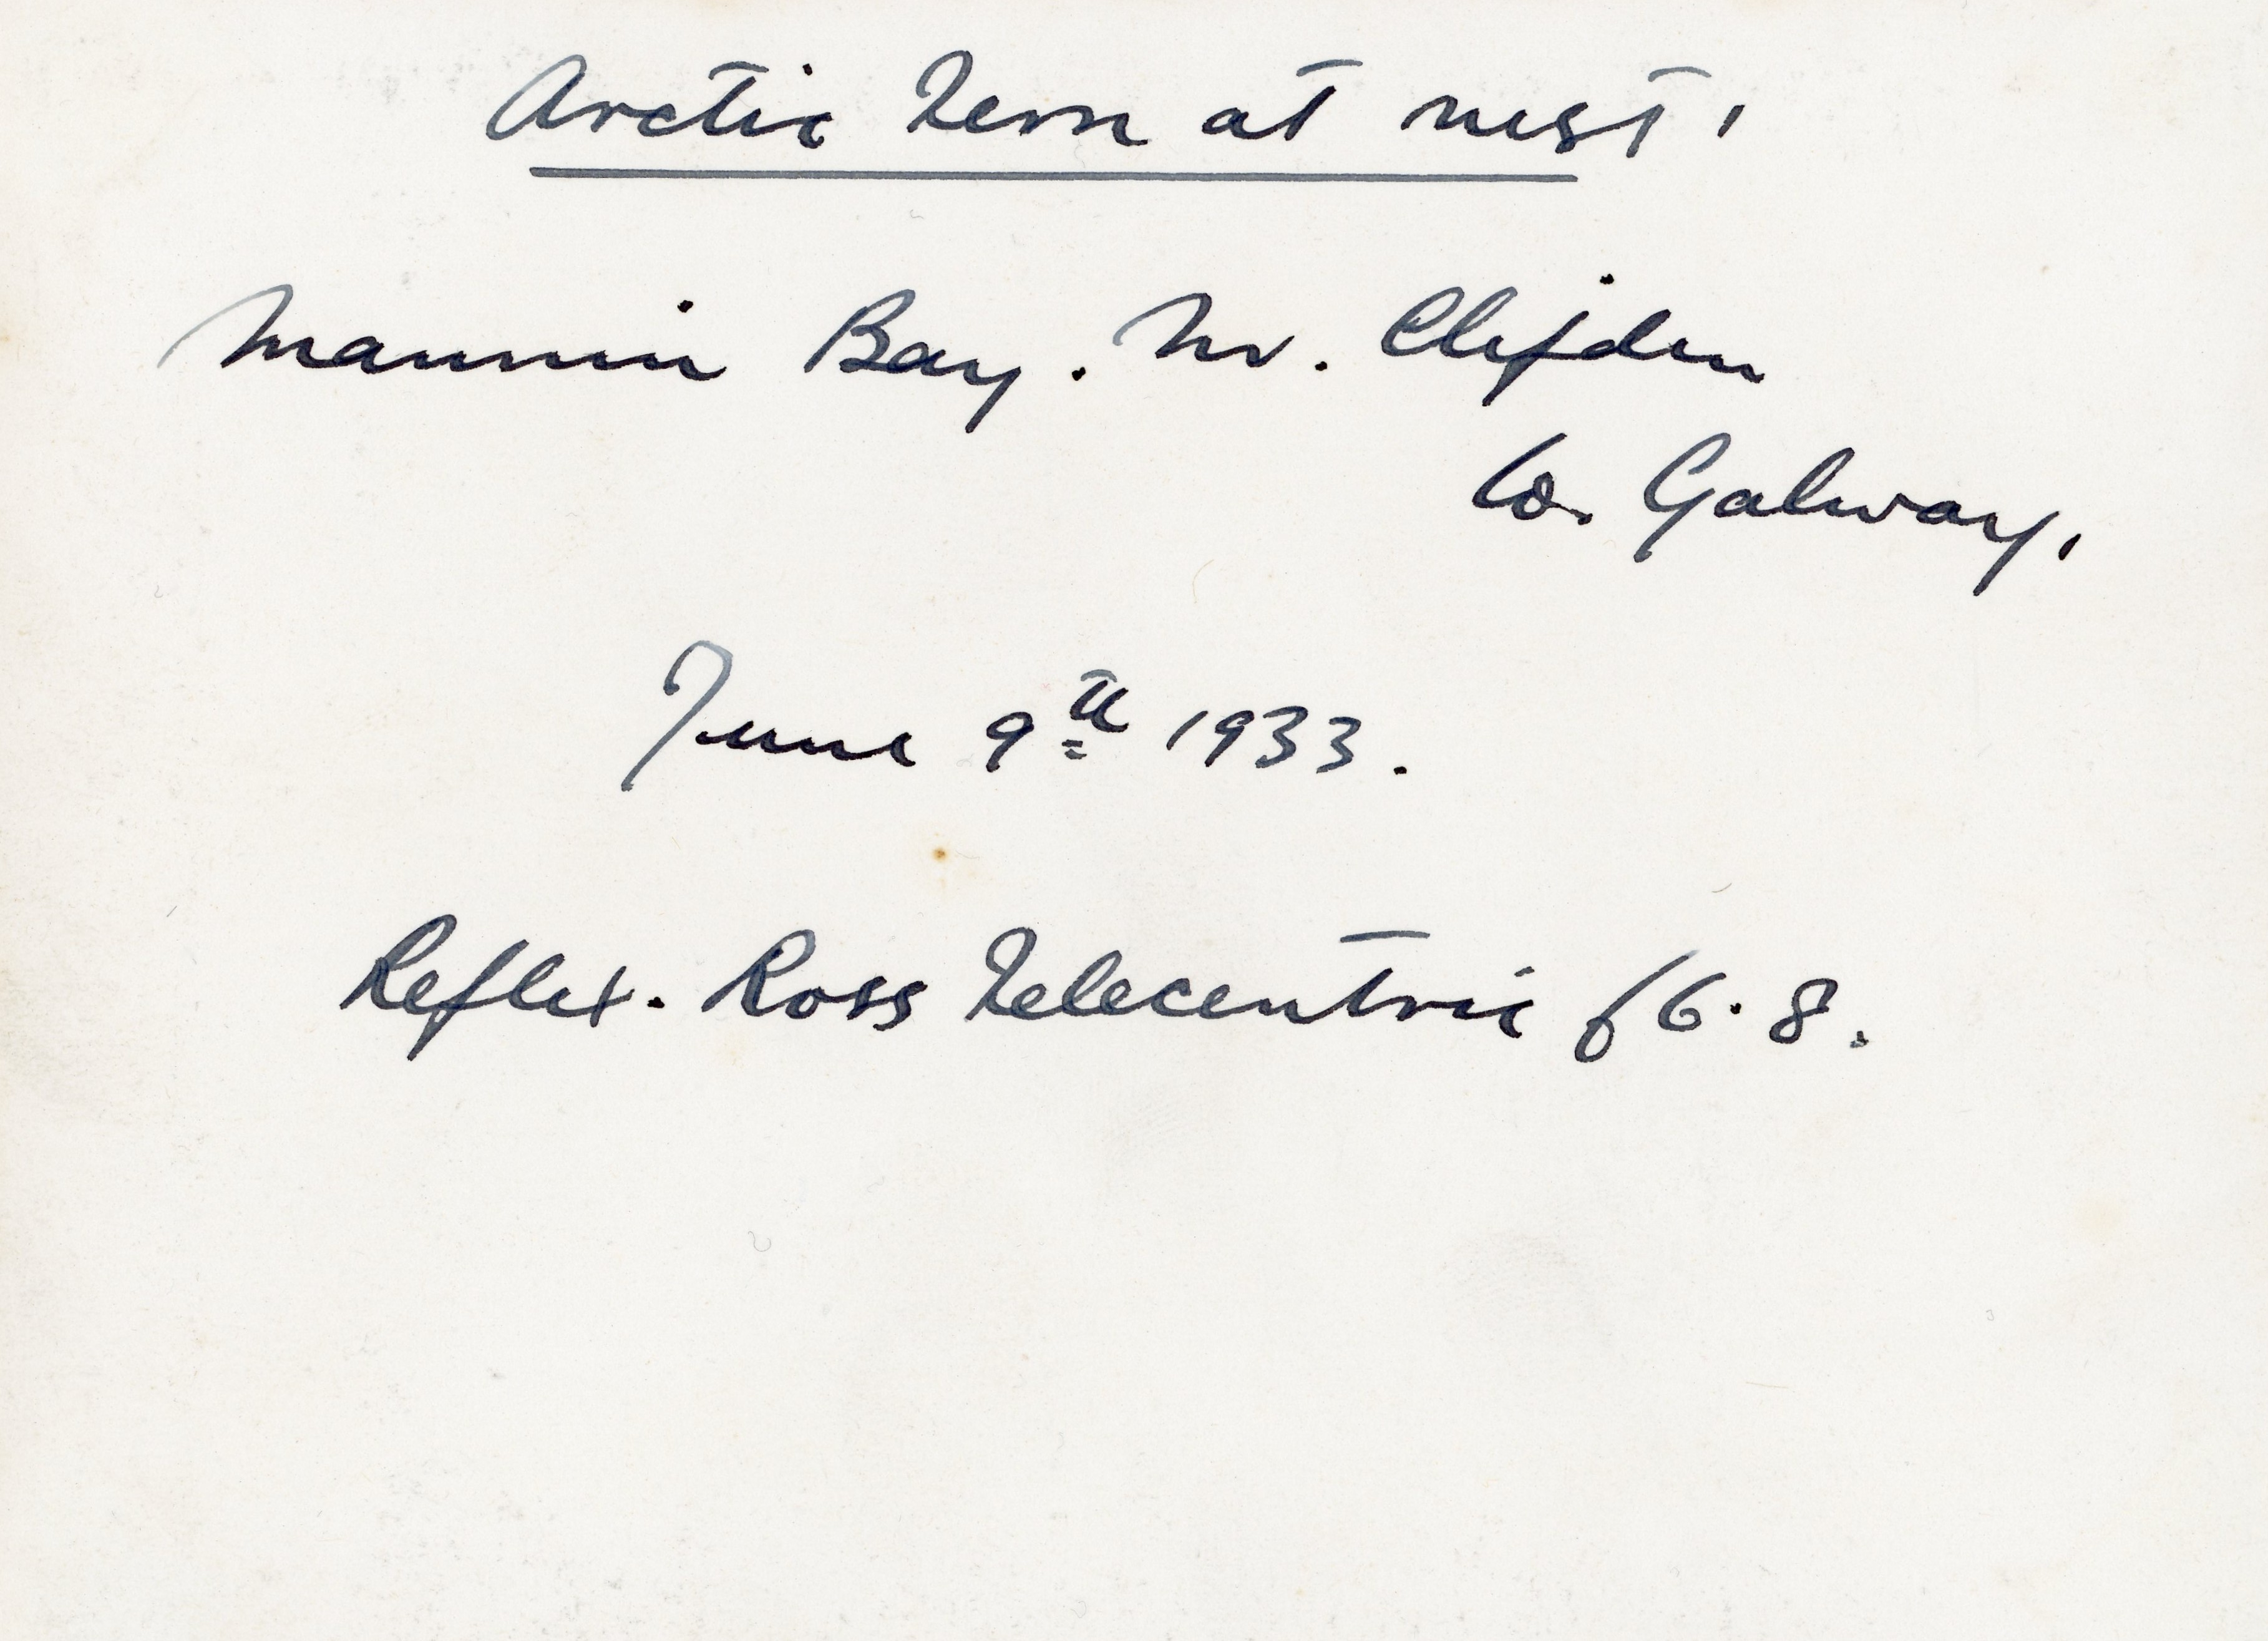 Arctic Tern at nest.
Mannin Bay. Nr. Clifden
Co. Galway.
June 9th 1933.
Reflex. Ross Telecentric f6.8.